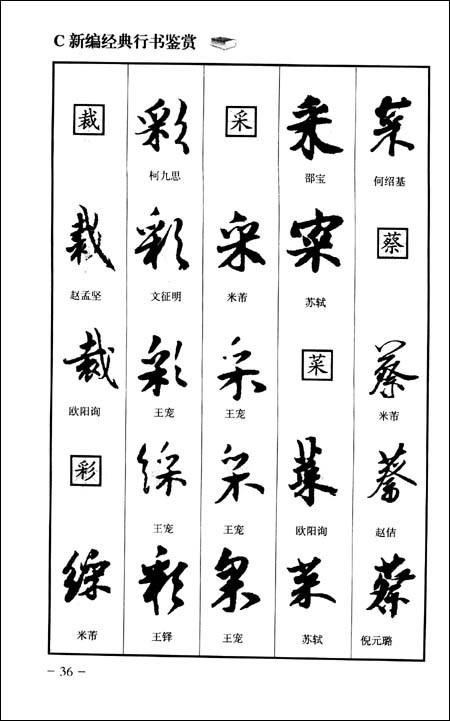 C 新编经典行书鉴赏
裁
裁
赵孟坚
裁
欧阳询
彩
綵
米芾
彩
柯九思
彩
文征明
彩
王宠
綵
王宠
彩
王铎
采
采
米芾
采
王宠
采
王宠
采
王宠
采
邵宝
寀
苏轼
菜
菜
欧阳询
菜
苏轼
菜
何绍基
蔡
蔡
米芾
蔡
赵佶
蔡
倪元璐
- 36 -